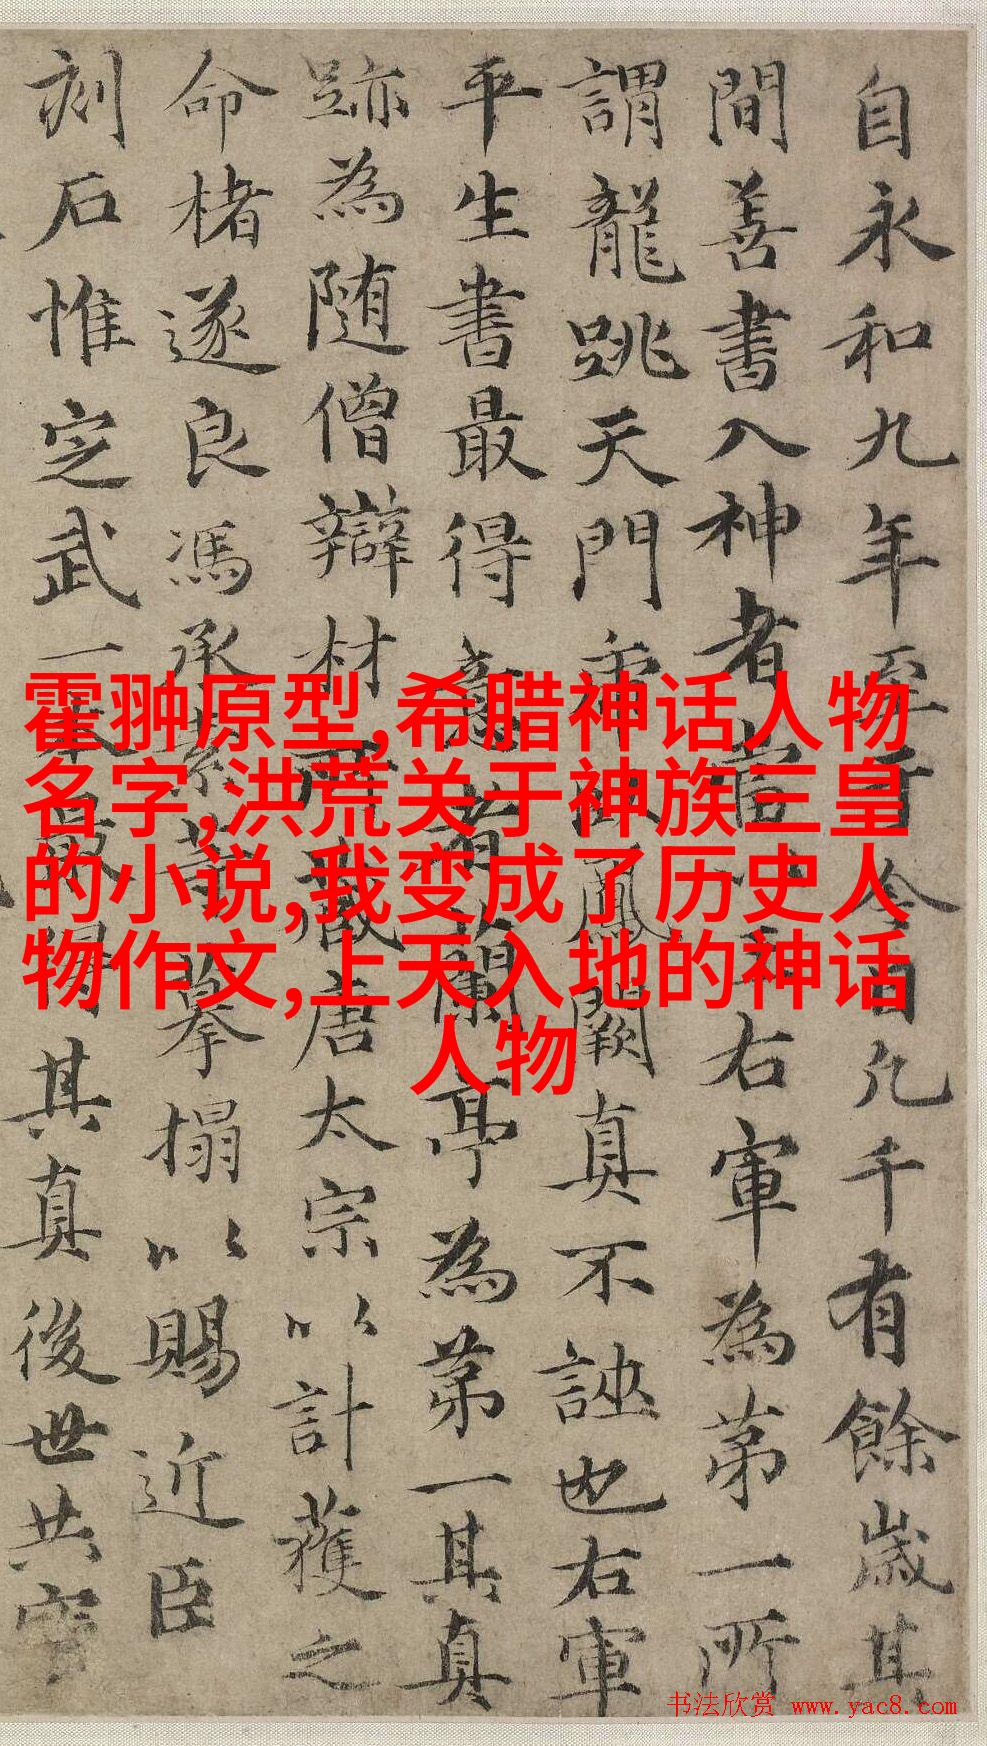 自永和九年至于今凡千有餘歲其
間善書入神者當以王右軍為第一所
謂龍跳天門虎卧鳳闕真不誣也右軍
平生書最得意者蘭亭為第一其真
跡為随僧辯材所藏唐太宗以計獲之
命楮遂良馮承素等摹搨以賜近臣
刻石惟定武一本最得其真後世共寶
霍翀原型,希腊神话人物
名字,洪荒关于神族三皇
的小说,我变成了历史人
物作文,上天入地的神话
人物
书法欣赏 www.yac8.com